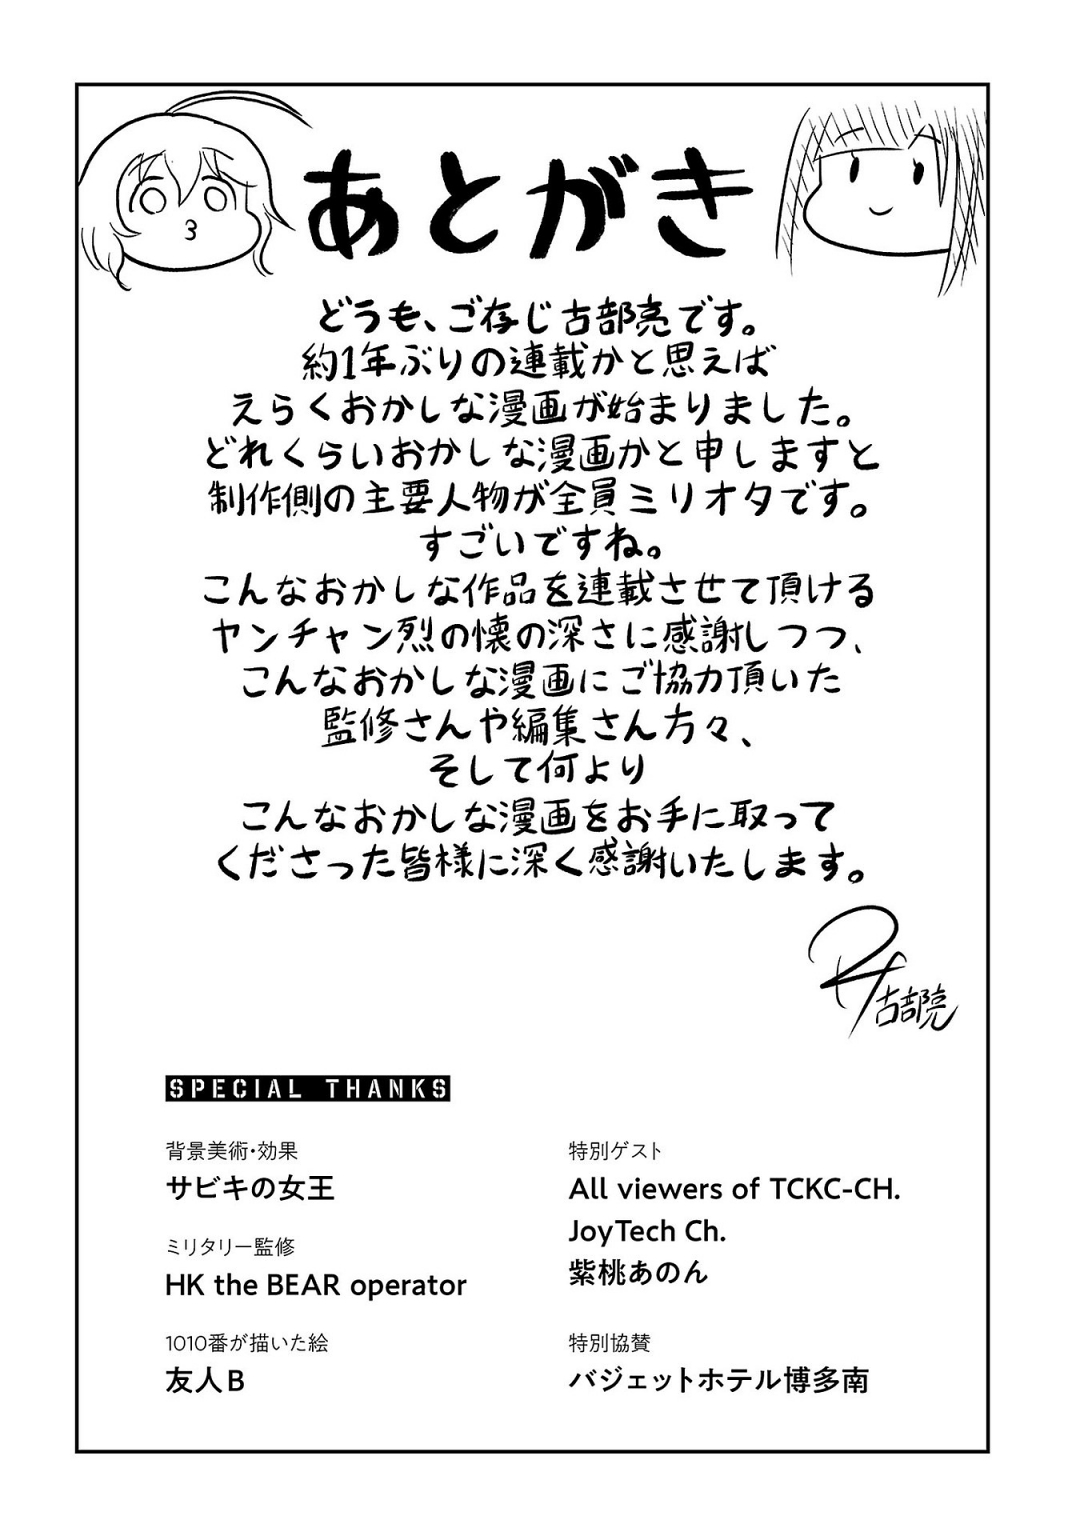 あとがき
どうも、ご存じ古部亮です。
約1年ぶりの連載かと思えば
えらくおかしな漫画が始まりました。
どれくらいおかしな漫画かと申しますと
制作側の主要人物が全員ミリオタです。
すごいですね。
こんなおかしな作品を連載させて頂ける
ヤンチャン烈の懐の深さに感謝しつつ、
こんなおかしな漫画にご協力頂いた
監修さんや編集さん方々、
そして何より
こんなおかしな漫画をお手に取って
くださった皆様に深く感謝いたします。
古部亮
SPECIAL THANKS
背景美術・効果
サビキの女王
ミリタリー監修
HK the BEAR operator
1010番が描いた絵
友人B
特別ゲスト
All viewers of TCKC-CH.
JoyTech Ch.
紫桃あのん
特別協賛
バジェットホテル博多南